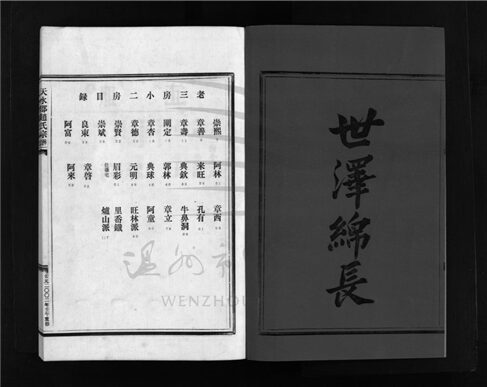 世澤綿長
老三房小二房目録
崇熙 阿林 章西
章善 来旺 孔有
章壽 典欽 牛鼻洞
開定 郭林 章立
章杏 典球 阿童
章德 元明 旺林派
崇賢 眉彩 里岙鐵
崇斌 爐山派
良東 章啓
阿富 阿來
天水郡趙氏宗譜
WENZHOU